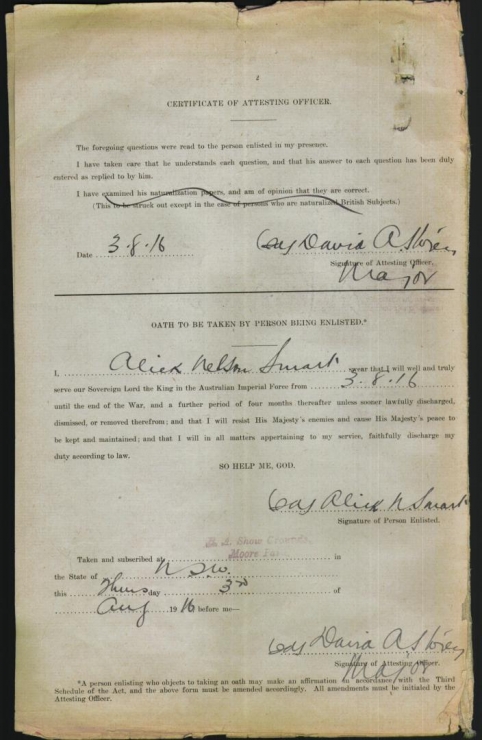 2
CERTIFICATE OF ATTESTING OFFICER.
The foregoing questions were read to the person enlisted in my presence.
I have taken care that he understands each question, and that his answer to each question has been duly
entered as replied to by him.
I have examined his naturalization papers, and am of opinion that they are correct.
(This to be struck out except in the case of persons who are naturalized British Subjects.)
Date 3.8.16
David A.
Signature of Attesting Officer,
Major
OATH TO BE TAKEN BY PERSON BEING ENLISTED.*
I, Alick Nelson Smart swear that I will well and truly
serve our Sovereign Lord the King in the Australian Imperial Force from 3.8.16
until the end of the War, and a further period of four months thereafter unless sooner lawfully discharged,
dismissed, or removed therefrom; and that I will resist His Majesty's enemies and cause His Majesty's peace to
be kept and maintained; and that I will in all matters appertaining to my service, faithfully discharge my
duty according to law.
SO HELP ME, GOD.
Alick N Smart
Signature of Person Enlisted.
Show Grounds,
Moore
Taken and subscribed at in
the State of N.S.W.
this Thursday 3rd of
Aug 1916 before me—
David A.
Signature of Attesting Officer.
Major
*A person enlisting who objects to taking an oath may make an affirmation in accordance with the Third
Schedule of the Act, and the above form must be amended accordingly. All amendments must be initialed by the
Attesting Officer.